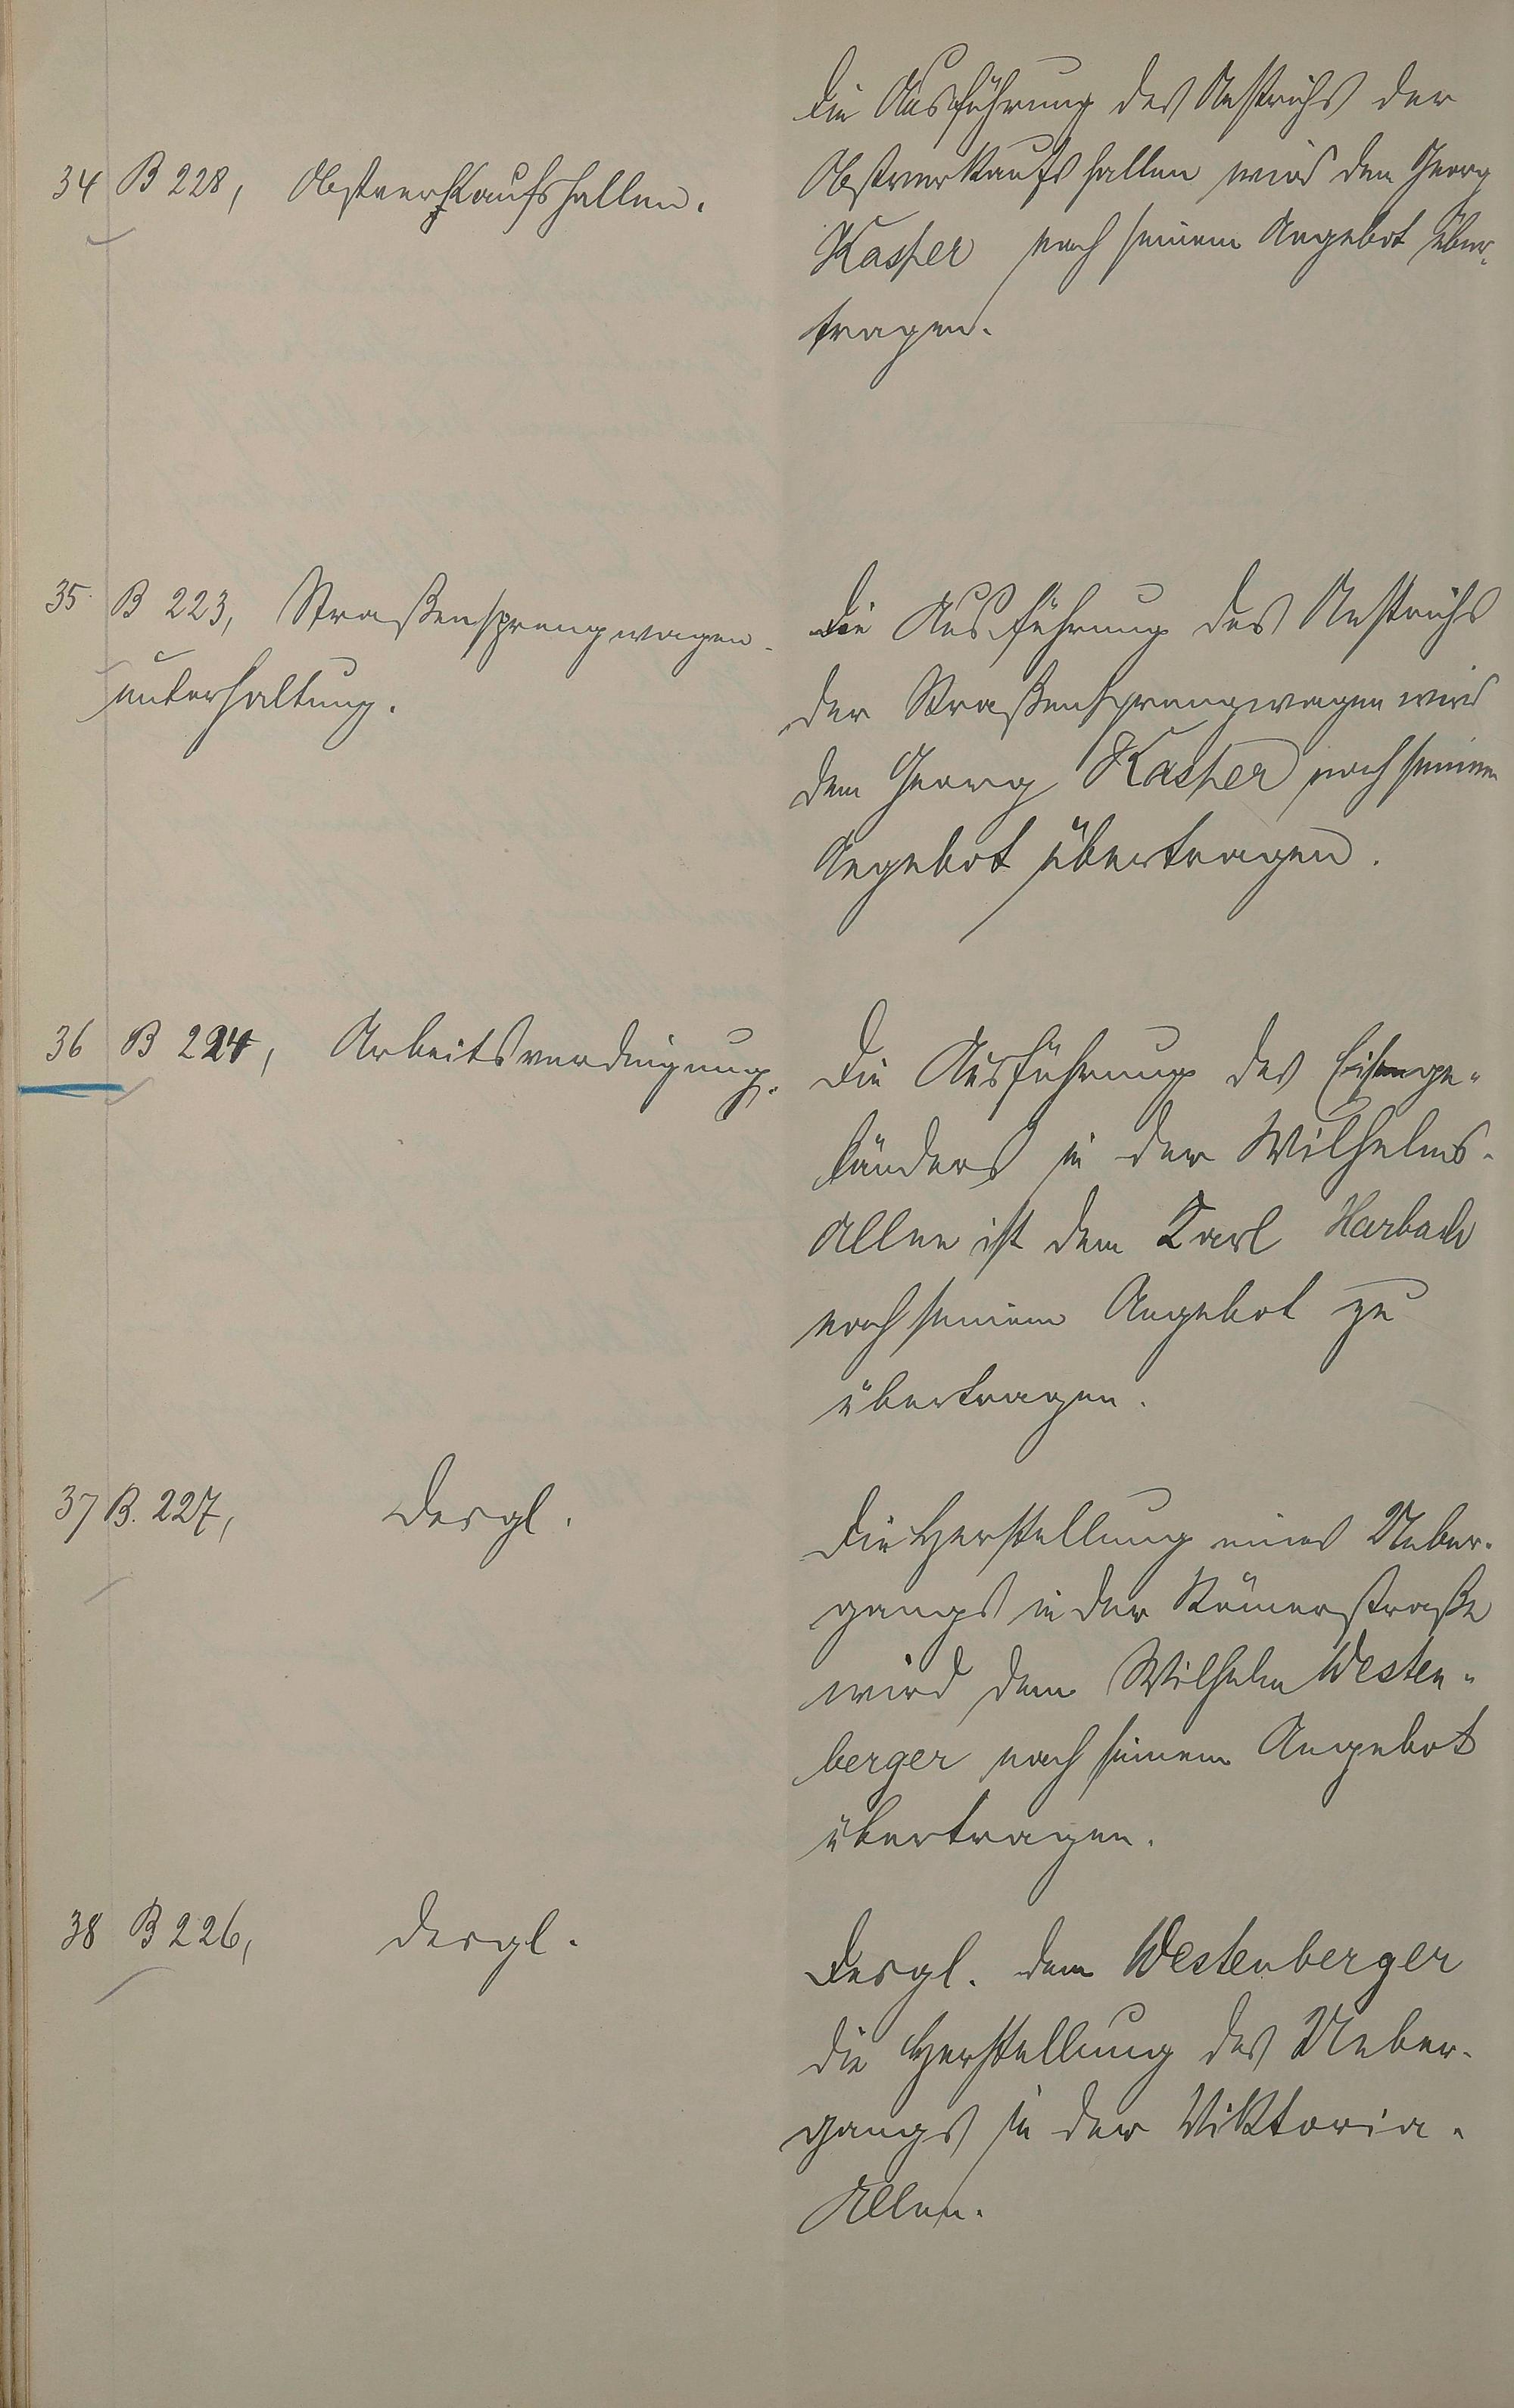 34 B 228, Obstverkaufshallen.
Die Ausführung des Anstrichs der
Obstverkaufshallen wird dem Georg
Kasper nach seinem Angebot über-
tragen.
35. B 223, Straßensprengwagen-
unterhaltung.
Die Ausführung des Anstrichs
der Straßensprengwagen wird
dem Georg Kasper nach seinem
Angebot übertragen.
36 B 224, Arbeitsverdingung.
Die Ausführung des Eisenge-
länders in der Wilhelms-
Allee ist dem Karl Harbach
nach seinem Angebot zu
übertragen.
37 B. 227, Desgl.
Die Herstellung eines Ueber-
gangs in der Römerstraße
wird dem Wilhelm Westen-
berger nach seinem Angebot
übertragen.
38 B 226, Desgl.
Desgl. dem Westenberger
die Herstellung des Ueber-
gangs in der Viktoria-
Allee.